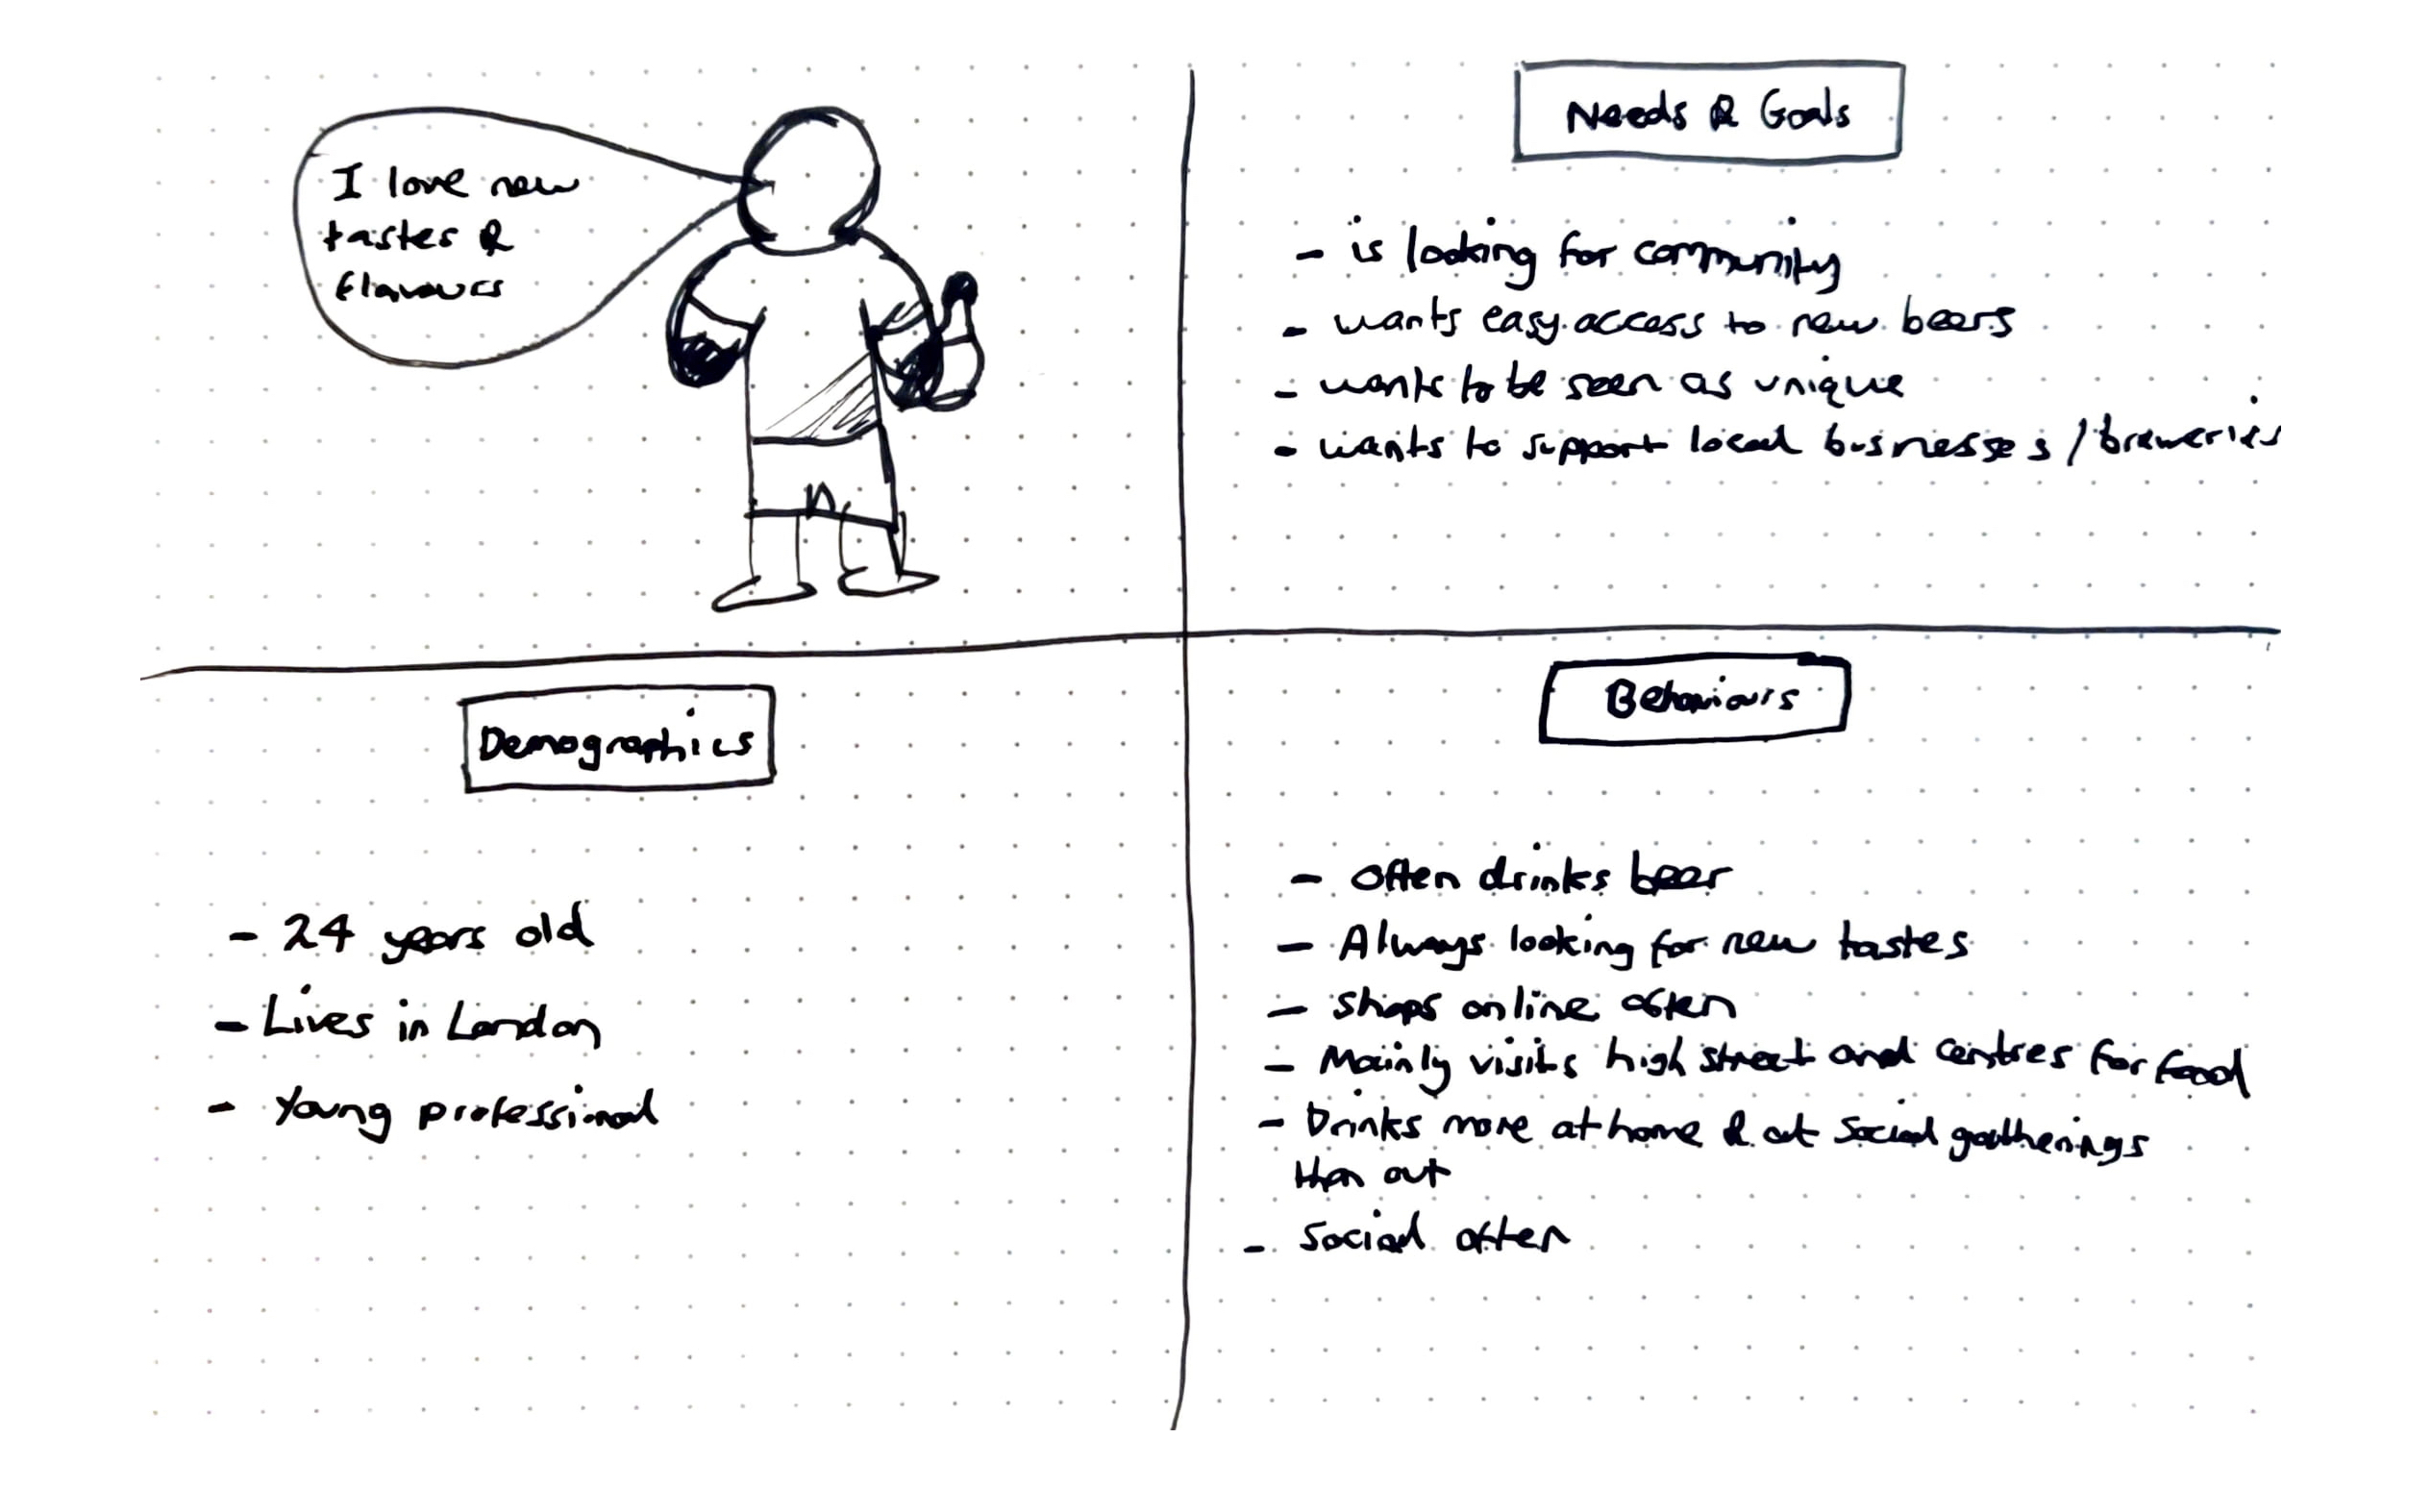 I love new
tastes &
flavours
Needs & Goals
- is looking for community
- wants easy access to new beers
- wants to be seen as unique
- wants to support local businesses / breweries
Demographics
- 24 years old
- Lives in London
- Young professional
Behaviours
- Often drinks beer
- Always looking for new tastes
- Shops online often
- Mainly visits high street and centres for food
- Drinks more at home & at social gatherings
than out
- Social often